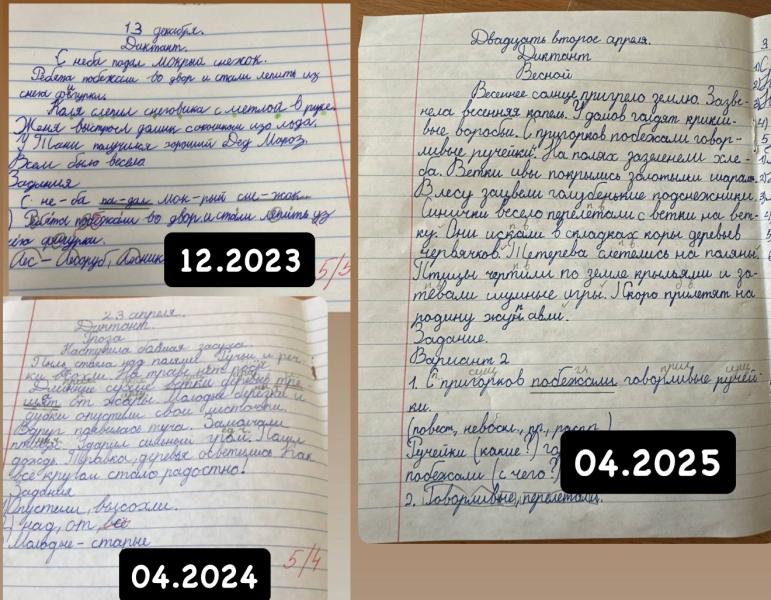 13 декабря.
Диктант.
С неба падал мокрый снежок.
Ребята побежали во двор и стали лепить из
снега фигурки.
Коля слепил снеговика с метлой в руке.
Женя выстроил домик со окном изо льда.
У Тани получился хороший Дед Мороз.
Всем было весело
Задания
С не-ба па-дал мок-рый сне-жок.
Ребята побежали во двор и стали лепить из
снега фигурки.
Лес - Лесоруб, Лесник
5/5
12.2023
23 апреля.
Диктант.
Гроза
Наступила большая засуха
Пыль стала над полями. Пруды и реч-
ки высохли. На траве нет росы.
Длинные сухие ветки деревьев тре-
щат от жары. Молодые берёзки и
дубки опустили свои листочки.
Вдруг появилась туча. Замолчали
птицы. Ударил сильный гром. Пошёл
дождь. Травка, деревья осветились. Как
всё кругом стало радостно!
Задания
опустили, высохли.
над, от, всё
Молодые - старые
5/4
04.2024
Двадцать второе апреля.
Диктант
Весной
Весеннее солнце пригрело землю. Зазве-
нела весенняя капель. У домов галдят крикли-
вые воробьи. С пригорков побежали говор-
ливые ручейки. На полях зазеленели хле-
ба. Ветки ивы покрылись золотыми шарами.
В лесу зацвели голубенькие подснежники.
Синички весело перелетали с ветки на вет-
ку. Они искали в складках коры деревьев
червячков. Тетерева слетелись на поляны.
Птицы чертили по земле крыльями и за-
тевали шумные игры. Скоро прилетят на
родину журавли.
Задание.
Вариант 2
сущ. гл. прил. сущ.
1. С пригорков побежали говорливые ручей-
ки.
(повест., невоскл., пр., расп.)
Ручейки (какие?)
побежали (с чего?)
2. Говорливые, перелетали.
04.2025